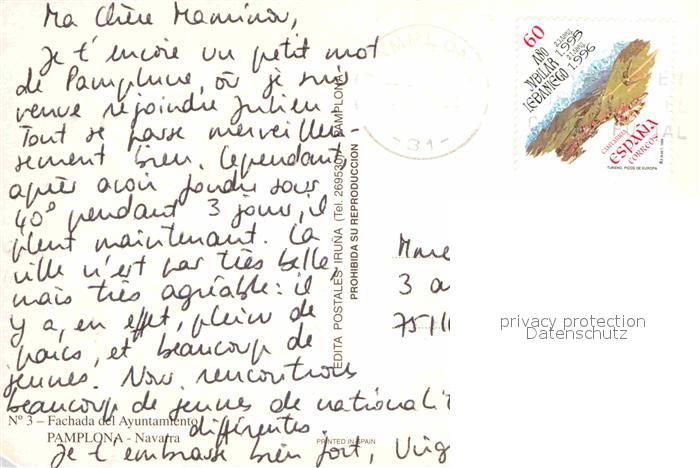 Ma Chère Maminou,
Je t'encore un petit mot
de Pamplune, où je suis
venue rejoindre Julien.
Tout se passe merveilleu-
sement bien. Cependant,
après avoir fondu sous
40° pendant 3 jours, il
pleut maintenant. La
ville n'est pas très belle,
mais très agréable : il
y a, en effet, plein de
parcs, et beaucoup de
jeunes. Nous rencontrons
beaucoup de jeunes de nationalit
différentes.
Je t'embrasse bien fort, Virg
Nº 3 – Fachada del Ayuntamiento
PAMPLONA - Navarra
EDITA POSTALES IRUÑA (Tel. 269530) PAMPLONA
PROHIBIDA SU REPRODUCCION
PRINTED IN SPAIN
PAMPLONA
-31-
60
AÑO JUBILAR LEBANIEGO
1.995
1.996
CANTABRIA
ESPAÑA
CORREOS
TURISMO, PICOS DE EUROPA
Mme
3 a
751
privacy protection
Datenschutz